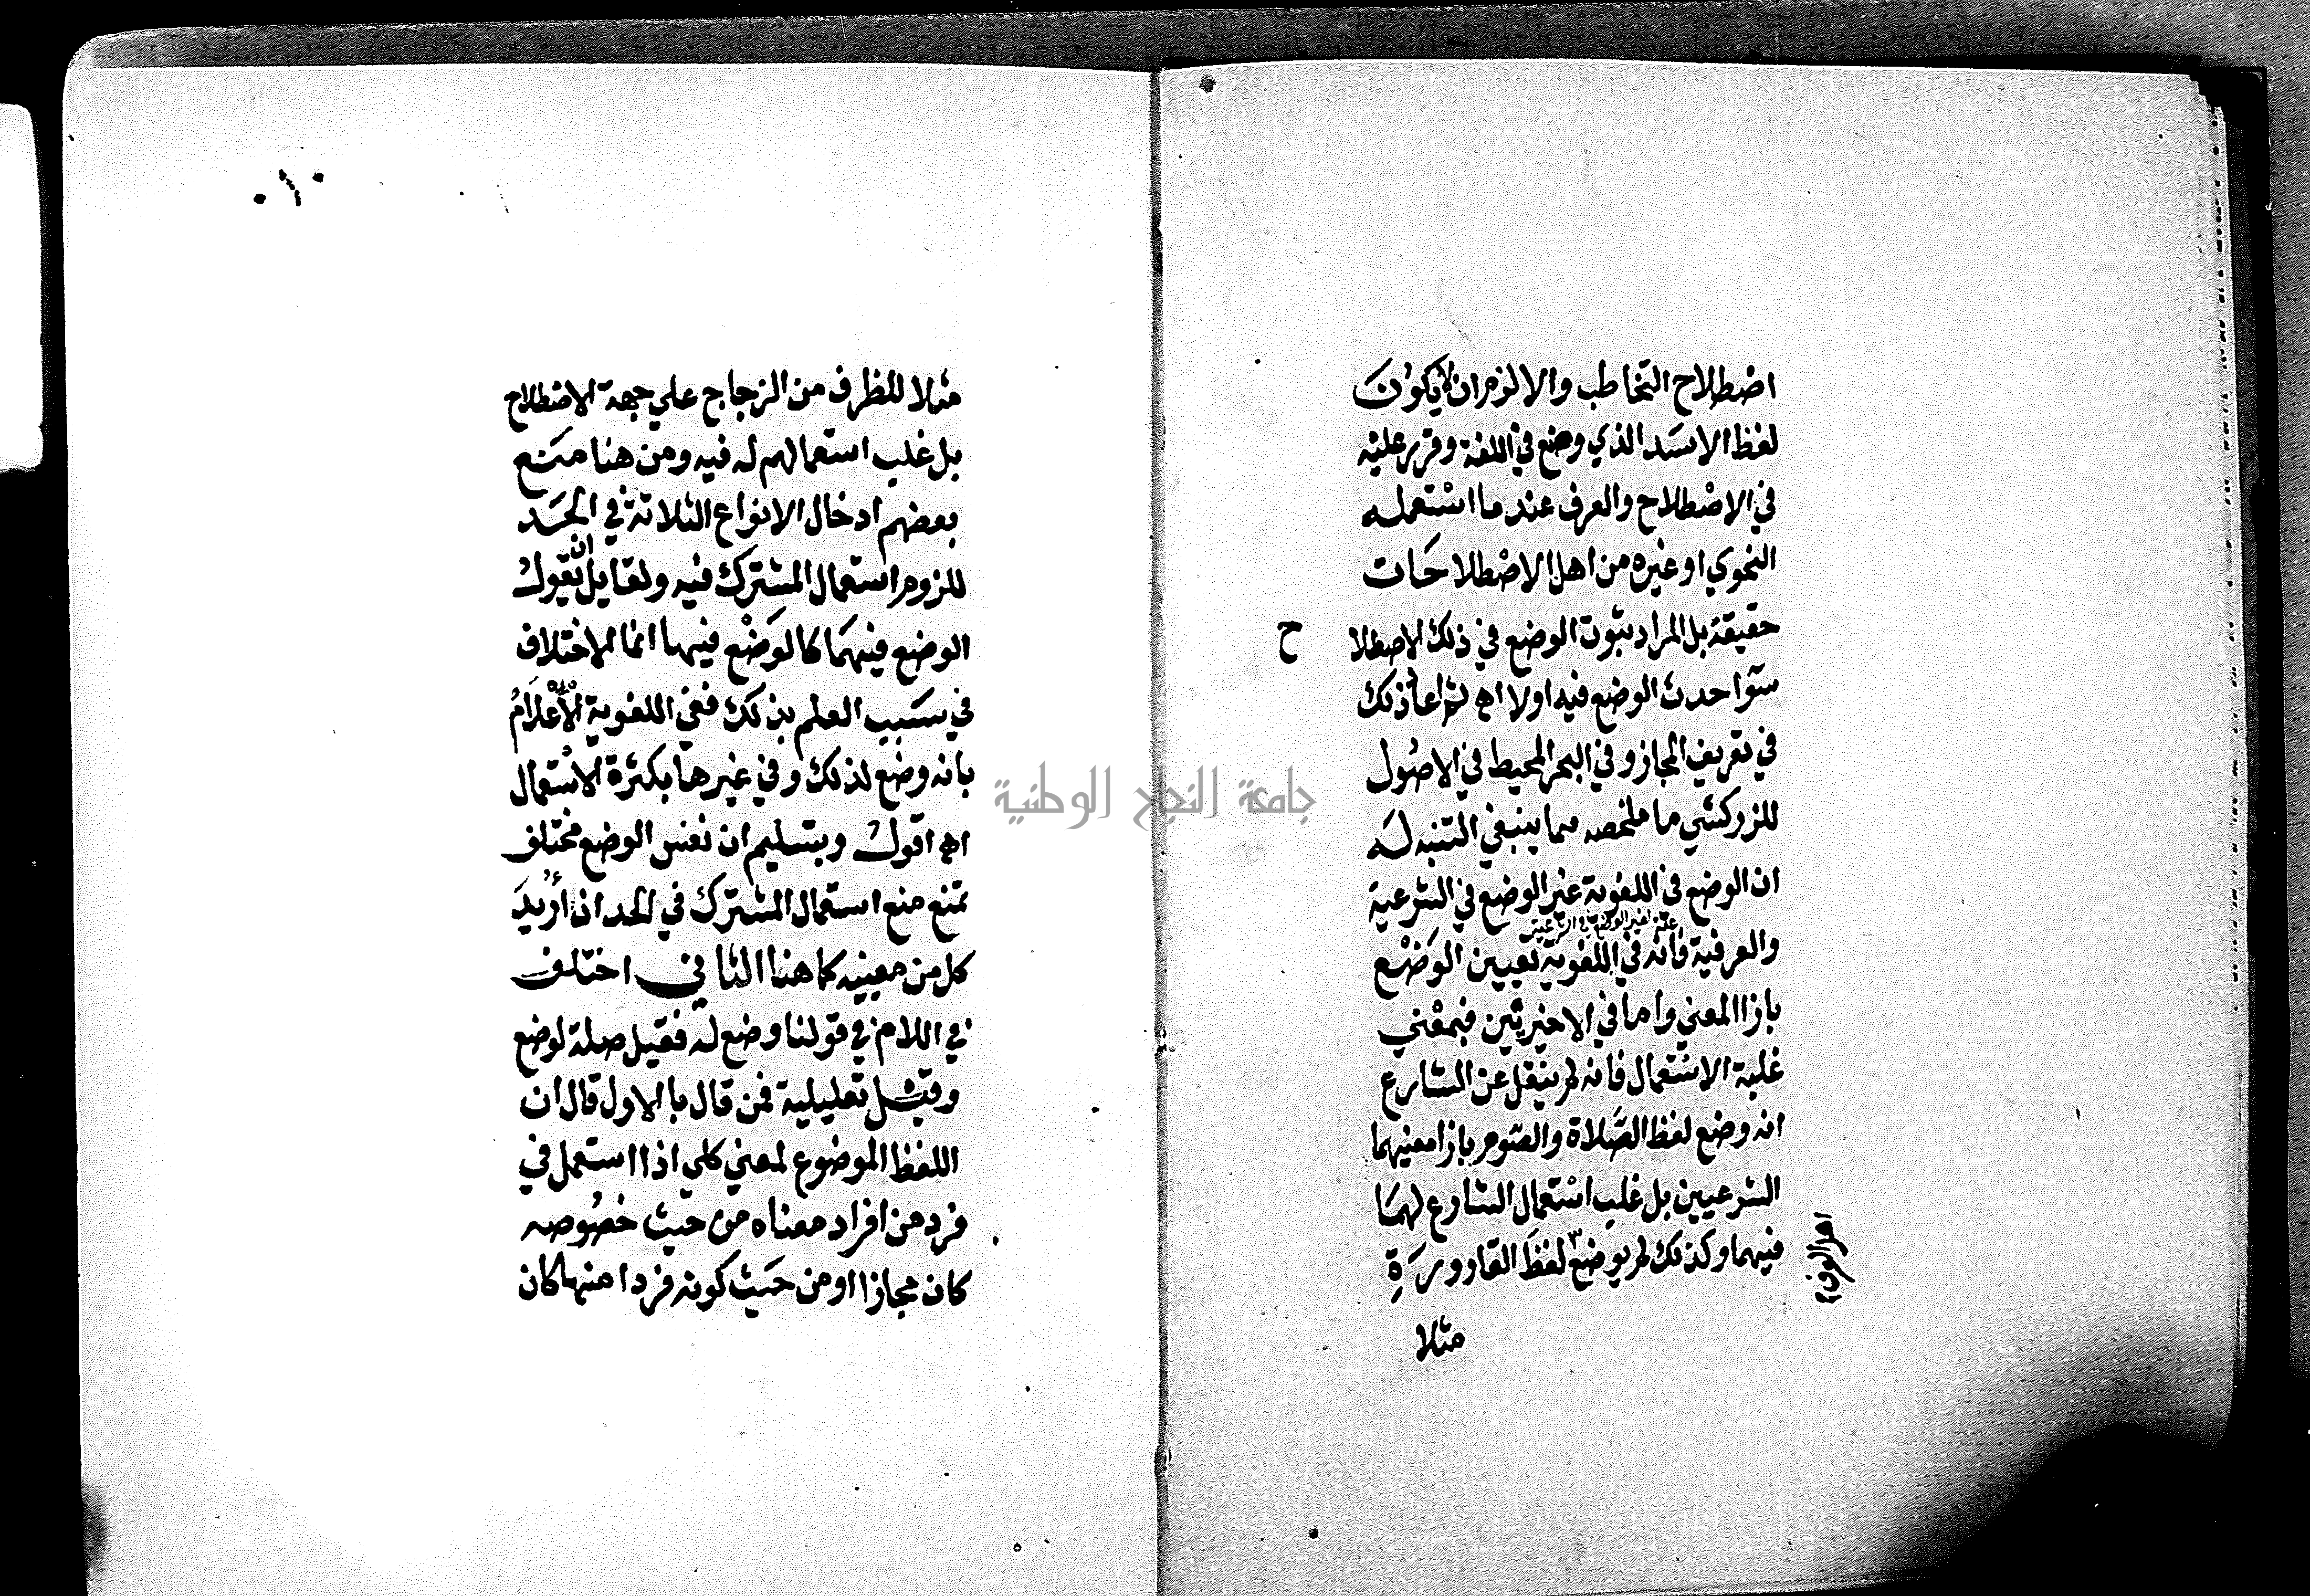 اصطلاح التخاطب والا لزم ان لا يكون
لفظ الاسد الذي وضع في اللغة وقرر عليه
في الاصطلاح والعرف عند ما استعمله
النحوي او غيره من اهل الاصطلاحات
حقيقة بل المراد بثبوت الوضع في ذلك الاصطلا
ح
سوا حدث الوضع فيه اولا اهـ ثم اعاد ذلك
في تعريف المجاز وفي البحر المحيط في الاصول
للزركشي ما ملخصه مما ينبغي التنبه له
ان الوضع في اللغوية غير الوضع في الشرعية
والعرفية فانه في اللغوية تعيين الوضع
بازا المعني واما في الاخيرتين فبمعني
غلبة الاستعمال فانه لم ينقل عن الشارع
انه وضع لفظ الصلاة والصوم بازا معنيهما
الشرعيين بل غلب استعمال الشارع لهما
فيهما وكذلك لم يوضع لفظ القارورة
مثلا
جامعة النجاح الوطنية
١٠
مثلا للظرف من الزجاج علي جهة الاصطلاح
بل غلب استعمالهم له فيه ومن هنا منع
بعضهم ادخال الانواع الثلاثة في الحد
للزوم استعمال المشترك فيه ولقايل ان يقول
الوضع فيهما كالوضع فيها انما الاختلاف
في سبب العلم بذلك ففي اللغوية الاعلام
بانه وضع لذلك وفي غيرها بكثرة الاستعمال
اهـ اقول وبتسليم ان نفس الوضع مختلف
تمنع منع استعمال المشترك في الحد ان اريد
كل من معنييه كما هنا الثاني اختلف
في اللام في قولنا وضع له فقيل صلة لوضع
وقيل تعليلية فمن قال بالاول قال ان
اللفظ الموضوع لمعني كلي اذا استعمل في
فرد من افراد معناه من حيث خصوصه
كان مجازا او من حيث كونه فردا منها كان